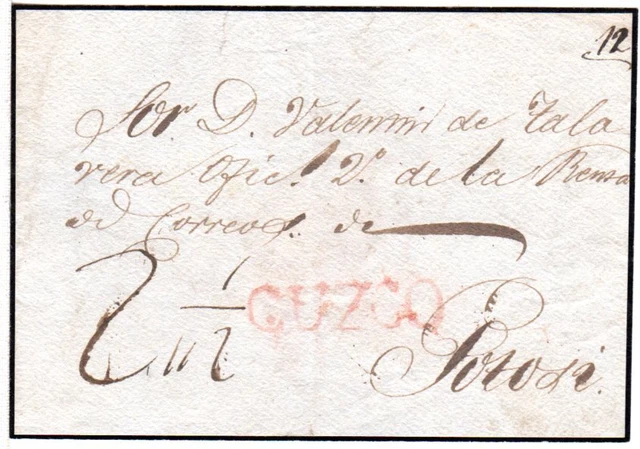 12
Sor. D. Valentin de Tala
vera Ofic.l 2.º de la Renta
de Correos. de
CUZCO
Potosi.